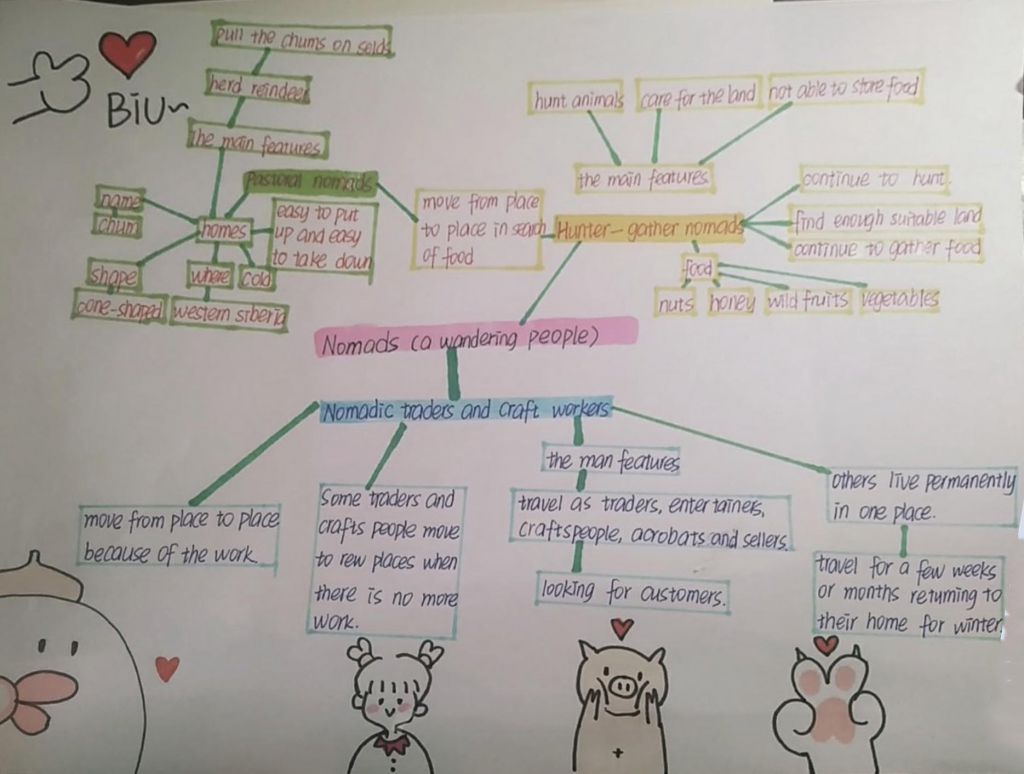 BIU~
pull the chums on selds
herd reindeer
the main features
Pastoral nomads
name
chum
homes
easy to put
up and easy
to take down
shape
where
cold
cone-shaped
western siberia
move from place
to place in seach
of food
hunt animals
care for the land
not able to store food
the main features
Hunter-gather nomads
continue to hunt.
find enough suitable land
continue to gather food
food
nuts
honey
wild fruits
vegetables
Nomads (a wandering people)
Nomadic traders and craft workers
move from place to place
because of the work.
Some traders and
crafts people move
to rew places when
there is no more
work.
the man features
travel as traders, entertainers,
craftspeople, acrobats and sellers.
looking for customers.
others live permanently
in one place.
travel for a few weeks
or months returning to
their home for winter.